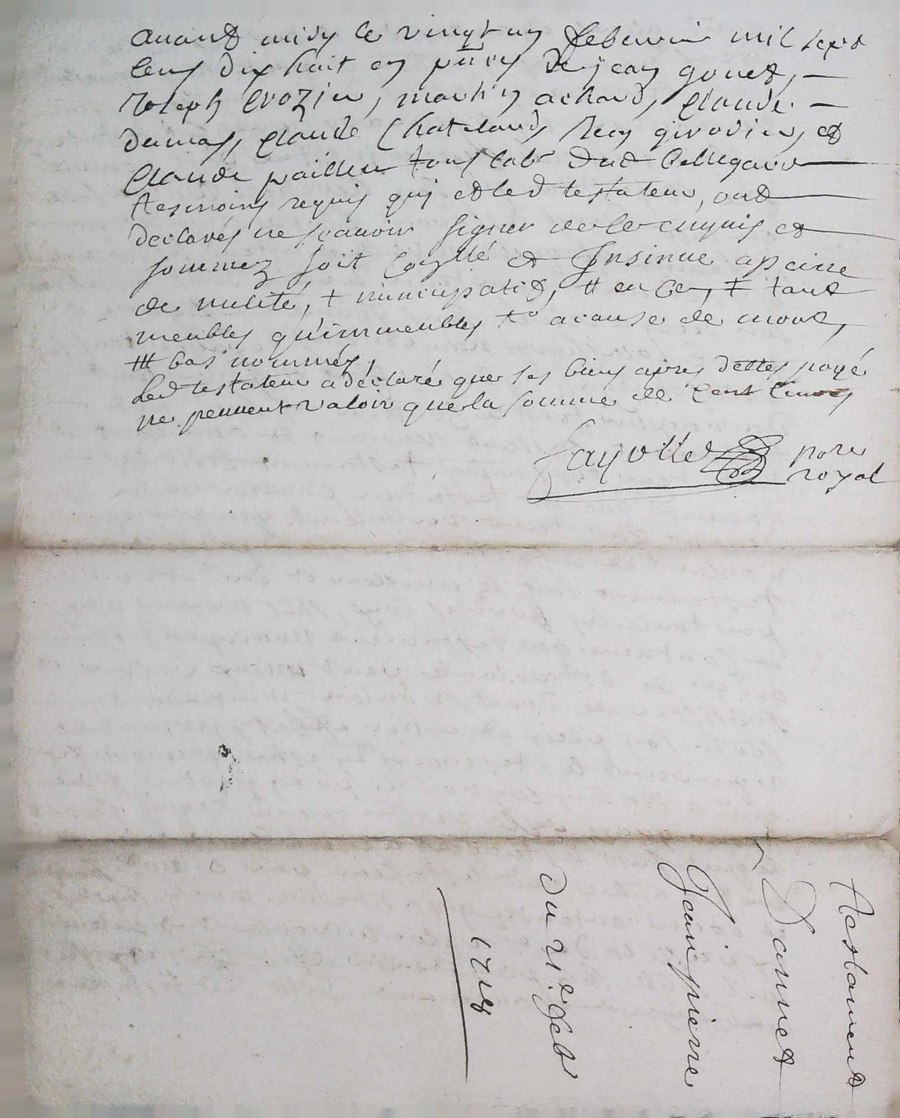 avant midy le vingt un febvrier mil sept
cens dix huit en pñce de jean gonet,
Joseph Crozier, marthin achard, Claude
dumas, Claude Chateland, girodier, et
Claude paillieu tous lab.r dud bellegarde
tesmoins requis qui et led testateur, ont
declarés ne scavoir signer de ce enquis et
sommez soit et Insinue a peine
de nulité, + nuncupatif, # en ce, ‡ tant
meubles qu'immeubles a cause de mort,
bas nommés,
Led testateur a déclaré que ses biens apres dettes payé
ne peuvent valoir que la somme de cent livres
Fayolle nore
royal
Testament
Jean pierre
du 21.e feb
1718